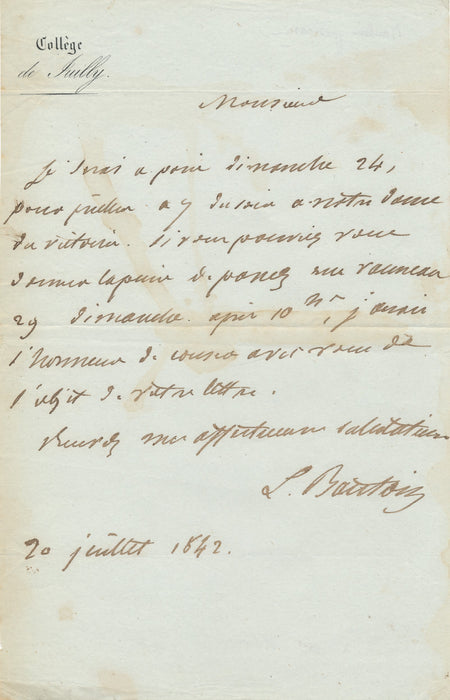 Collège
de Juilly.
Monsieur
Je serai a paris dimanche 24,
pour prêcher a 7 h du soir a notre dame
des victoires. Si vous pouviez vous
donner la peine de passer rue
29 dimanche après 10 h, j'aurai
l'honneur de causer avec vous de
l'objet de votre lettre.
Recevez mes affectueuses salutations
L. Bautain
20 juillet 1842.